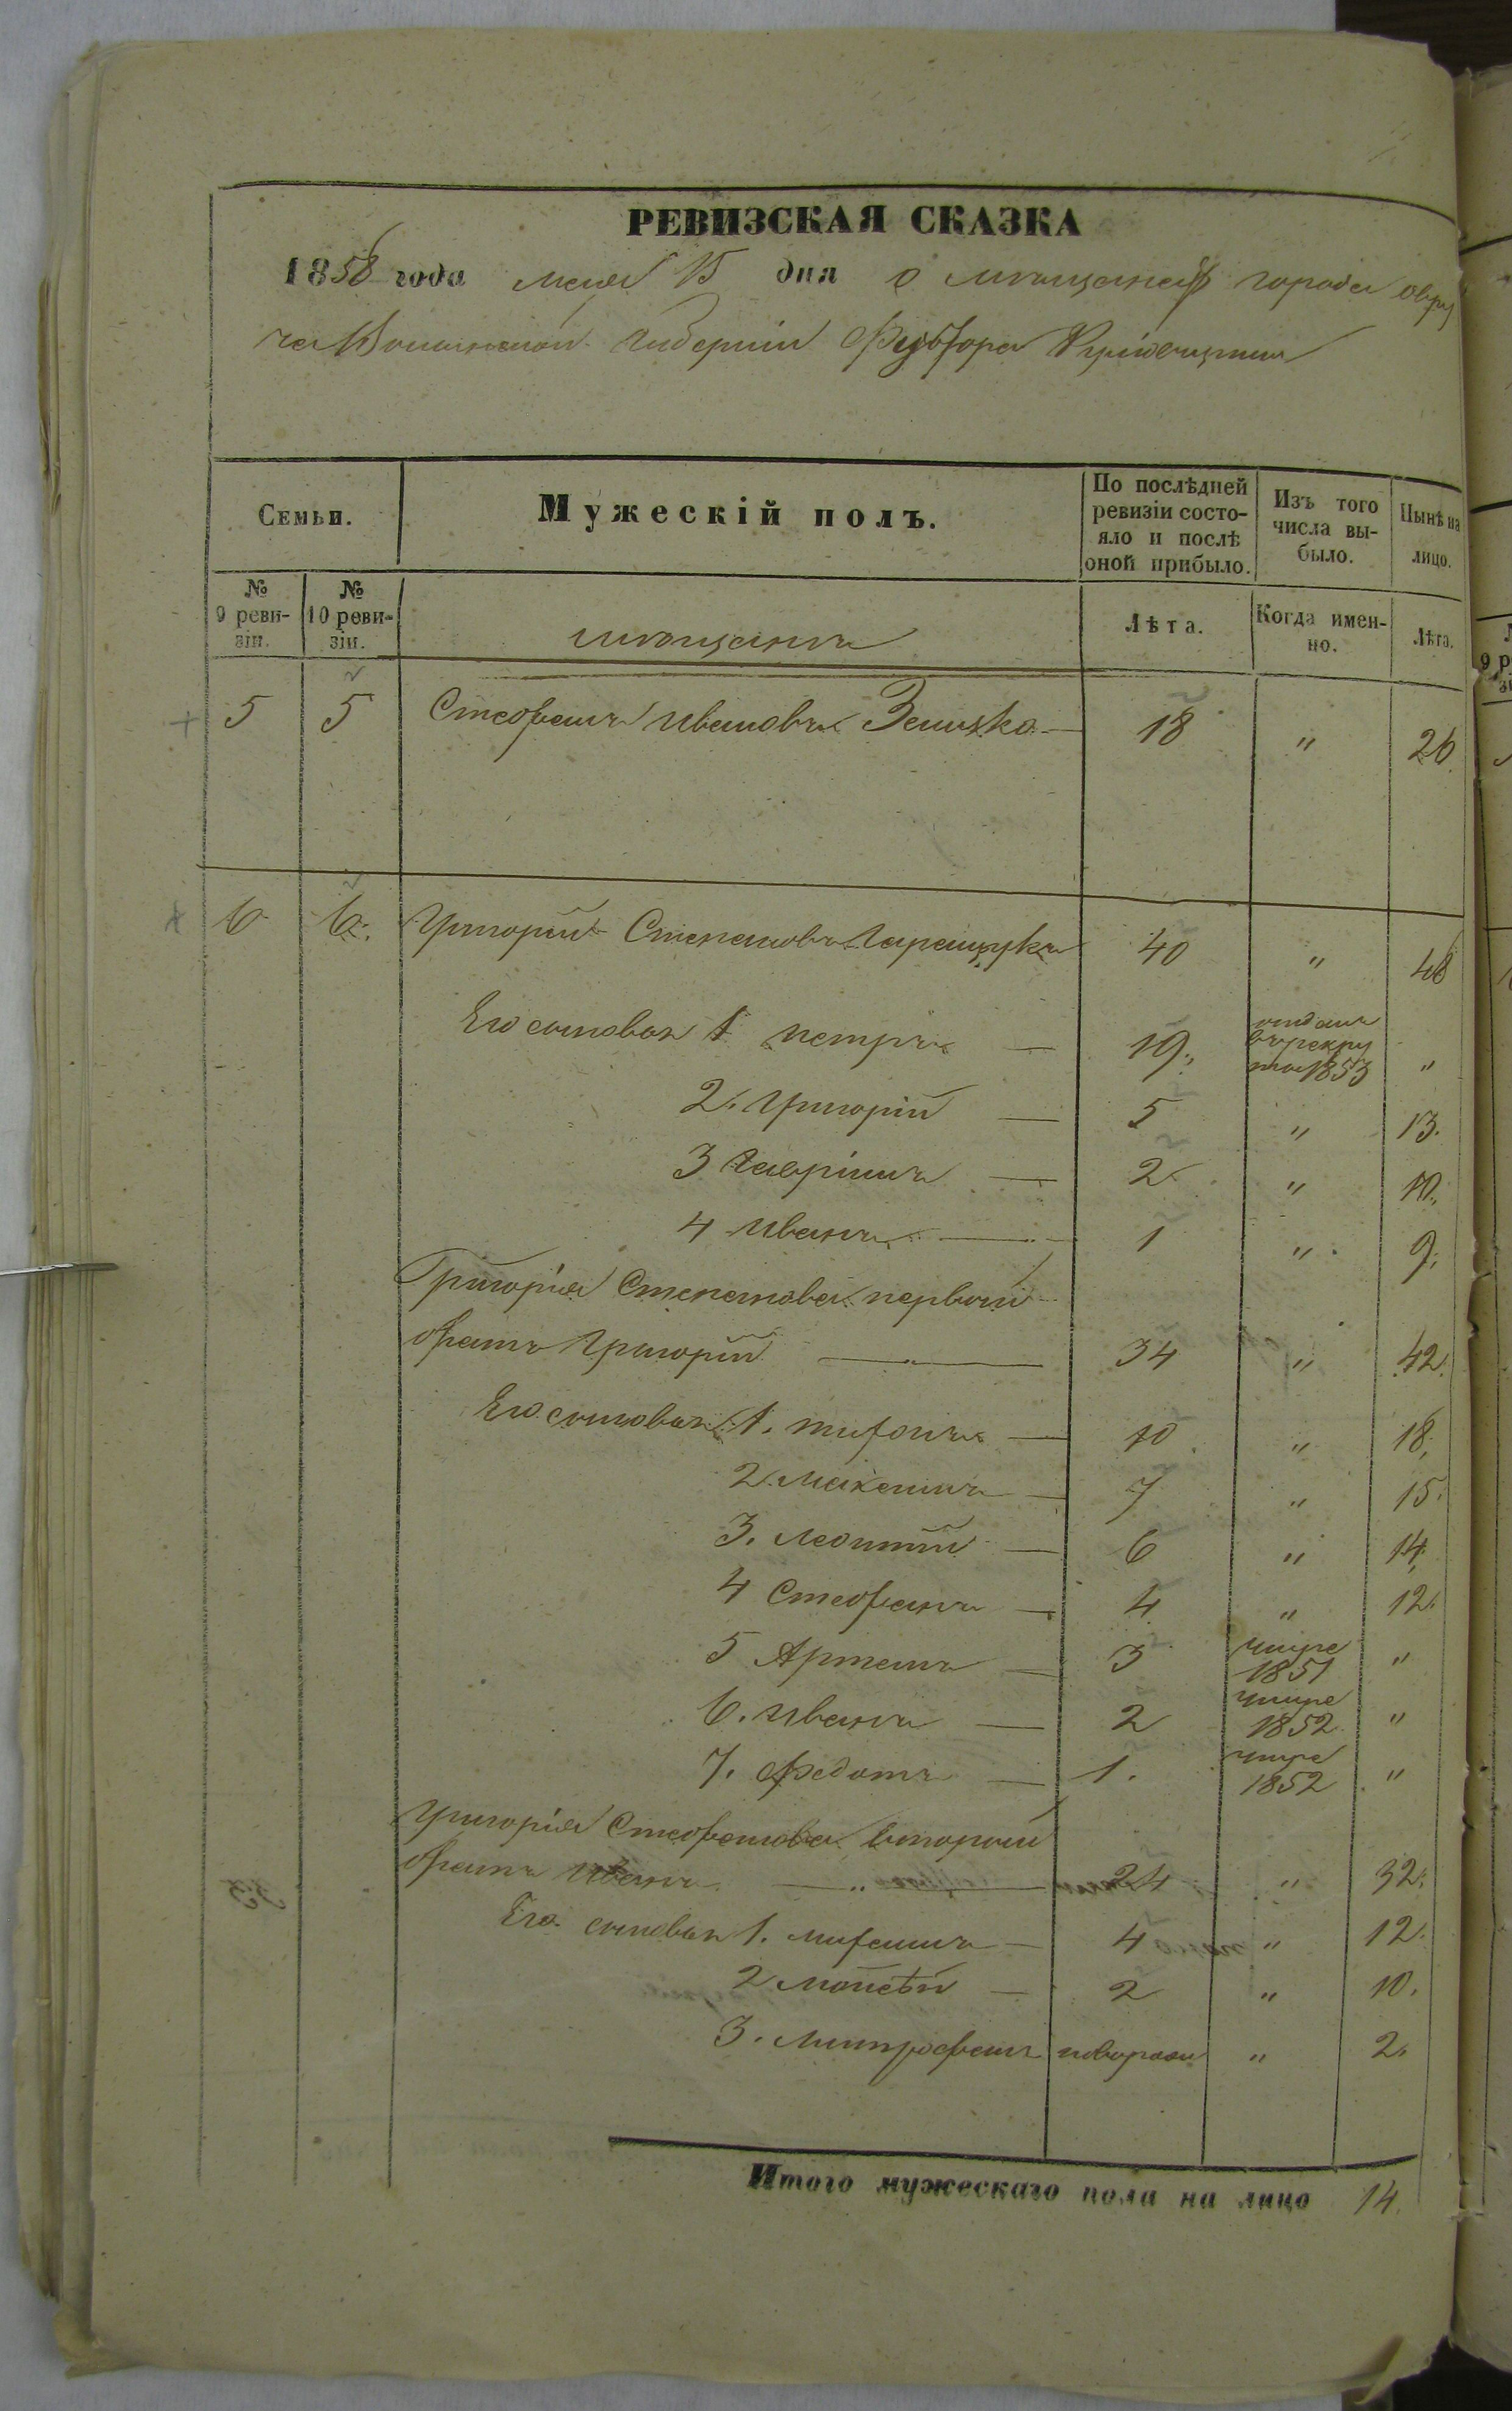 РЕВИЗСКАЯ СКАЗКА
1858 года мая 15 дня о мѣщанахъ города Овру
ча Волынской Губерніи
Семьи.
Мужескій полъ.
По послѣдней ревизіи состояло и послѣ оной прибыло.
Изъ того числа выбыло.
Нынѣ на лицо.
№ 9 ревизіи.
№ 10 ревизіи.
мѣщанѣ
Лѣта.
Когда именно.
Лѣта.
5 5 Стефанъ Ивановъ 18 " 26
6 6. Григорій Степановъ Гаращукъ 40 " 48
Его сыновья 1 Петръ — 19. отданъ въ рекруты 1853 "
2. Григорій — 5 " 13.
3 Гавріилъ — 2 " 10.
4 Иванъ — 1 " 9.
Григорія Степанова первый
братъ Григорій — 34 " 42.
Его сыновья 1. Тифонъ — 10 " 18.
2. Максимъ — 7 " 15.
3. Леонтій — 6 " 14.
4 Стефанъ — 4 " 12.
5 Артемъ — 3 умре 1851 "
6. Иванъ — 2 умре 1852 "
7. Федотъ — 1. умре 1852 "
Григорія Стефанова второй
братъ Иванъ — " — 24 " 32.
Его сыновья 1. — 4 " 12.
2 Моисѣй — 2 " 10.
3. Митрофанъ новорожд " 2.
Итого мужескаго пола на лицо 14.
9 р